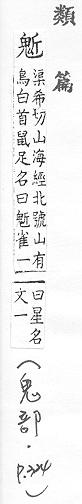 類篇
鬿
渠希切山海經北號山有
鳥白首鼠足名曰鬿雀一
曰星名
文一
(鬼部·